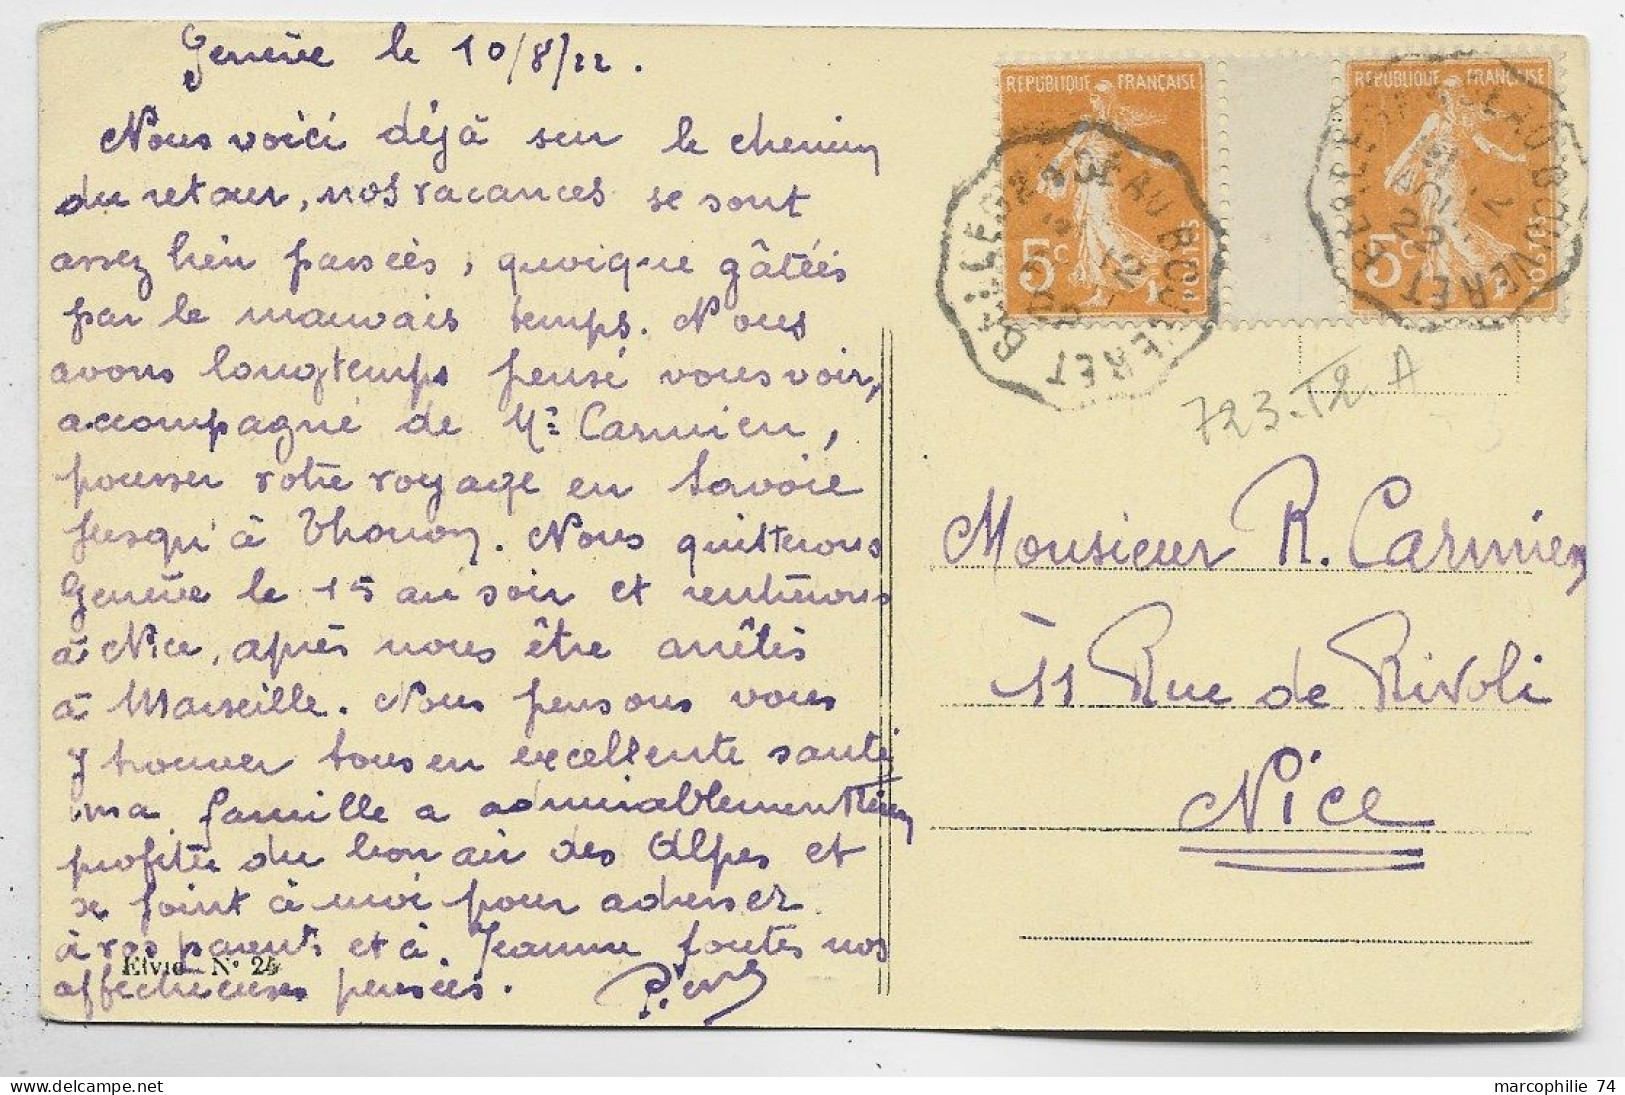 Genève le 10/8/22.
Nous voici déjà sur le chemin
du retour, nos vacances se sont
assez bien passées, quoique gâtées
par le mauvais temps. Nous
avons longtemps pensé vous voir,
accompagné de Mr Carmien,
pousser votre voyage en Savoie
jusqu'à Thonon. Nous quitterons
Genève le 15 au soir et rentrerons
à Nice, après nous être arrêtés
à Marseille. Nous pensons vous
y trouver tous en excellente santé
ma famille a admirablement bien
profité du bon air des Alpes et
se joint à moi pour adresser
à vos parents et à Jeanne toutes nos
affectueuses pensées.
N° 24
REPUBLIQUE FRANÇAISE
5c
POSTES
REPUBLIQUE FRANÇAISE
5c
POSTES
BELLEGARDE AU BOUVERET
BELLEGARDE AU BOUVERET
Monsieur R. Carmien
11 Rue de Rivoli
Nice
marcophilie 74